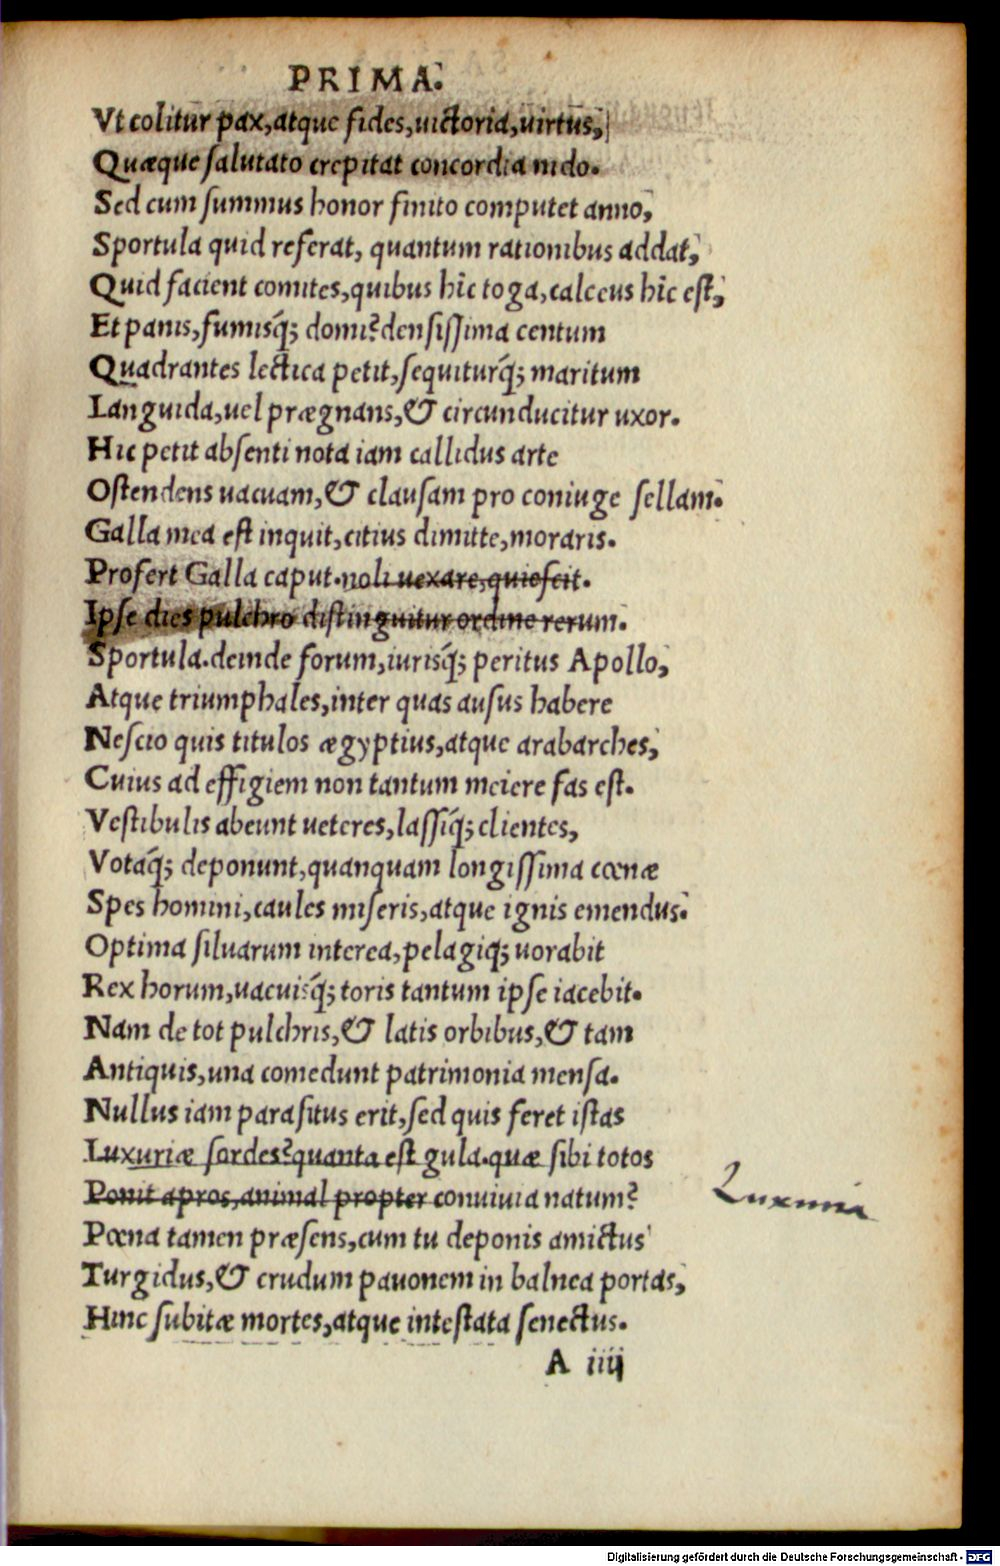 PRIMA.
Vt colitur pax, atque fides, uictoria, uirtus,
Quæque salutato crepitat concordia nido.
Sed cum summus honor finito computet anno,
Sportula quid referat, quantum rationibus addat,
Quid facient comites, quibus hîc toga, calceus hîc est,
Et panis, fumisq́; domi? densissima centum
Quadrantes lectica petit, sequiturq́; maritum
Languida, uel prægnans, & circunducitur uxor.
Hic petit absenti nota iam callidus arte
Ostendens uacuam, & clausam pro coniuge sellam.
Galla mea est inquit, citius dimitte, moraris.
Profert Galla caput. noli uexare, quiescit.
Ipse dies pulchro distinguitur ordine rerum.
Sportula. deinde forum, iurisq́; peritus Apollo,
Atque triumphales, inter quas ausus habere
Nescio quis titulos ægyptius, atque arabarches,
Cuius ad effigiem non tantum meiere fas est.
Vestibulis abeunt ueteres, lassiq́; clientes,
Votaq́; deponunt, quanquam longissima cœnæ
Spes homini, caules miseris, atque ignis emendus.
Optima siluarum interea, pelagiq́; uorabit
Rex horum, uacuisq́; toris tantum ipse iacebit.
Nam de tot pulchris, & latis orbibus, & tam
Antiquis, una comedunt patrimonia mensa.
Nullus iam parasitus erit, sed quis feret istas
Luxuriæ sordes? quanta est gula. quæ sibi totos
Ponit apros, animal propter conuiuia natum?
Luxuria
Pœna tamen præsens, cum tu deponis amictus
Turgidus, & crudum pauonem in balnea portas,
Hinc subitæ mortes, atque intestata senectus.
A iiij
Digitalisierung gefördert durch die Deutsche Forschungsgemeinschaft - DFG